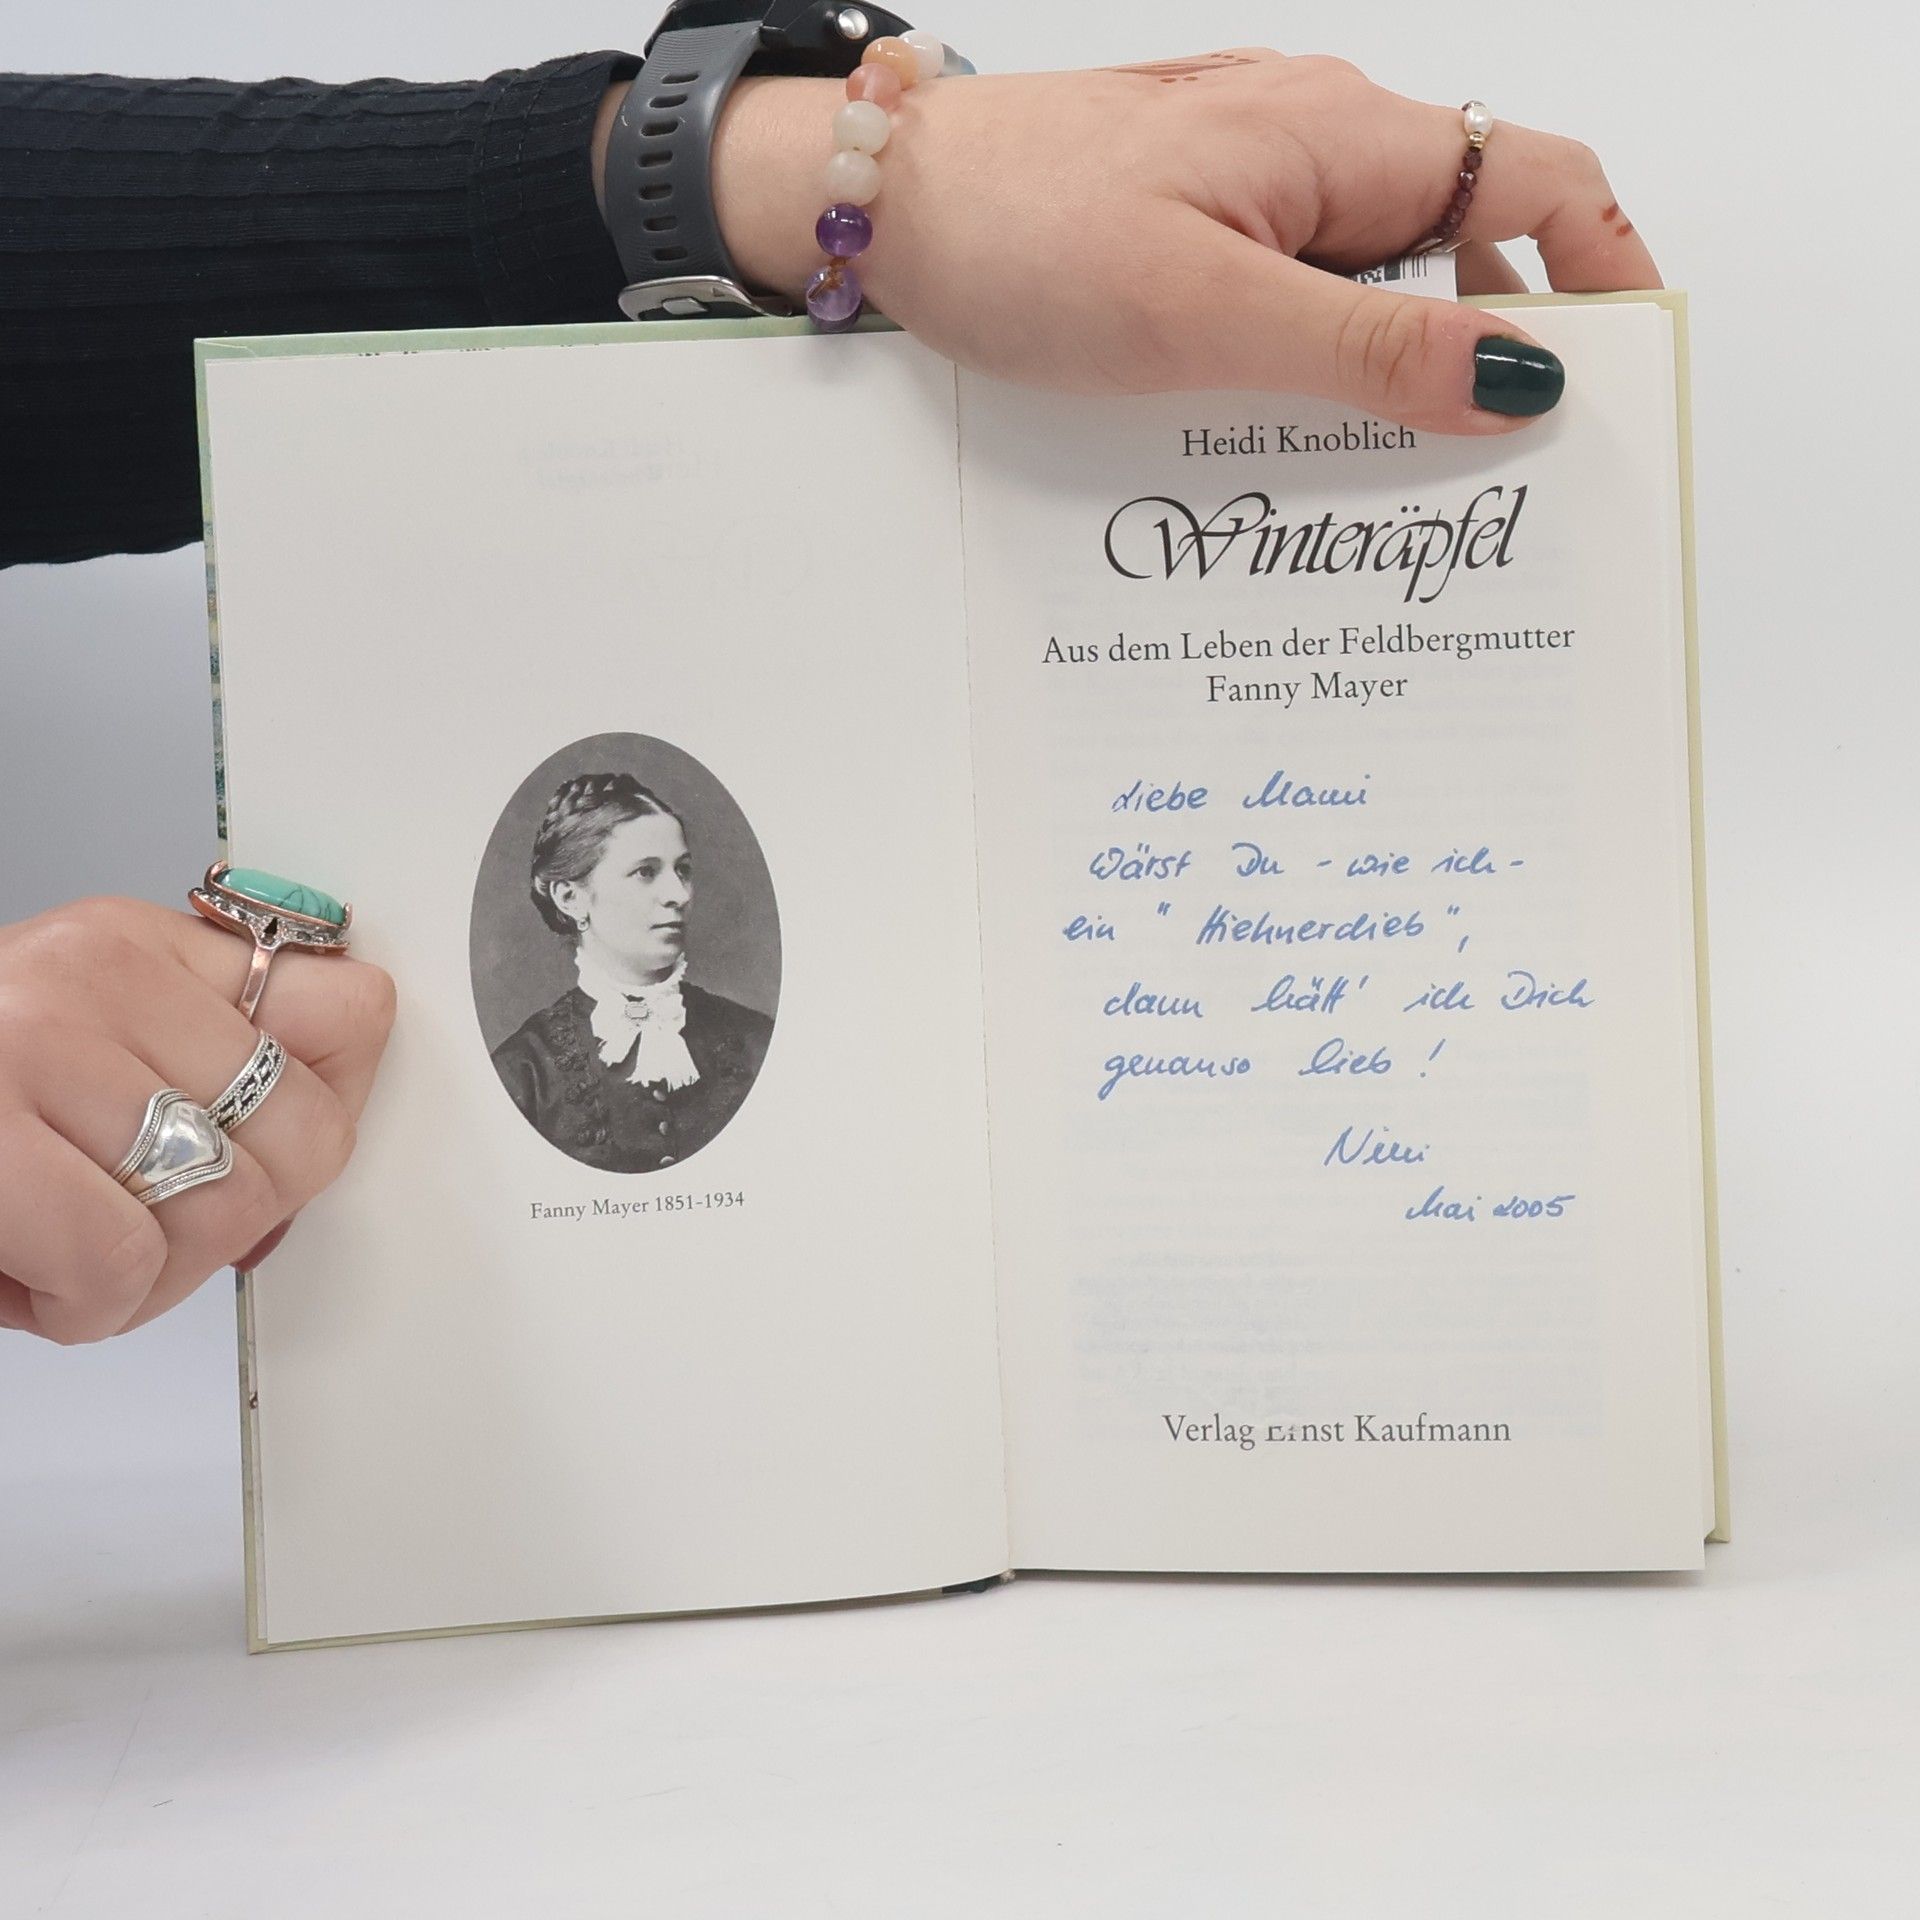 Fanny Mayer 1851-1934
Heidi Knoblich
Winteräpfel
Aus dem Leben der Feldbergmutter
Fanny Mayer
Liebe Mami
Wärst Du - wie ich -
ein "Hiehnerdieb",
dann hätt' ich Dich
genauso lieb!
Nini
Mai 2005
Verlag Ernst Kaufmann